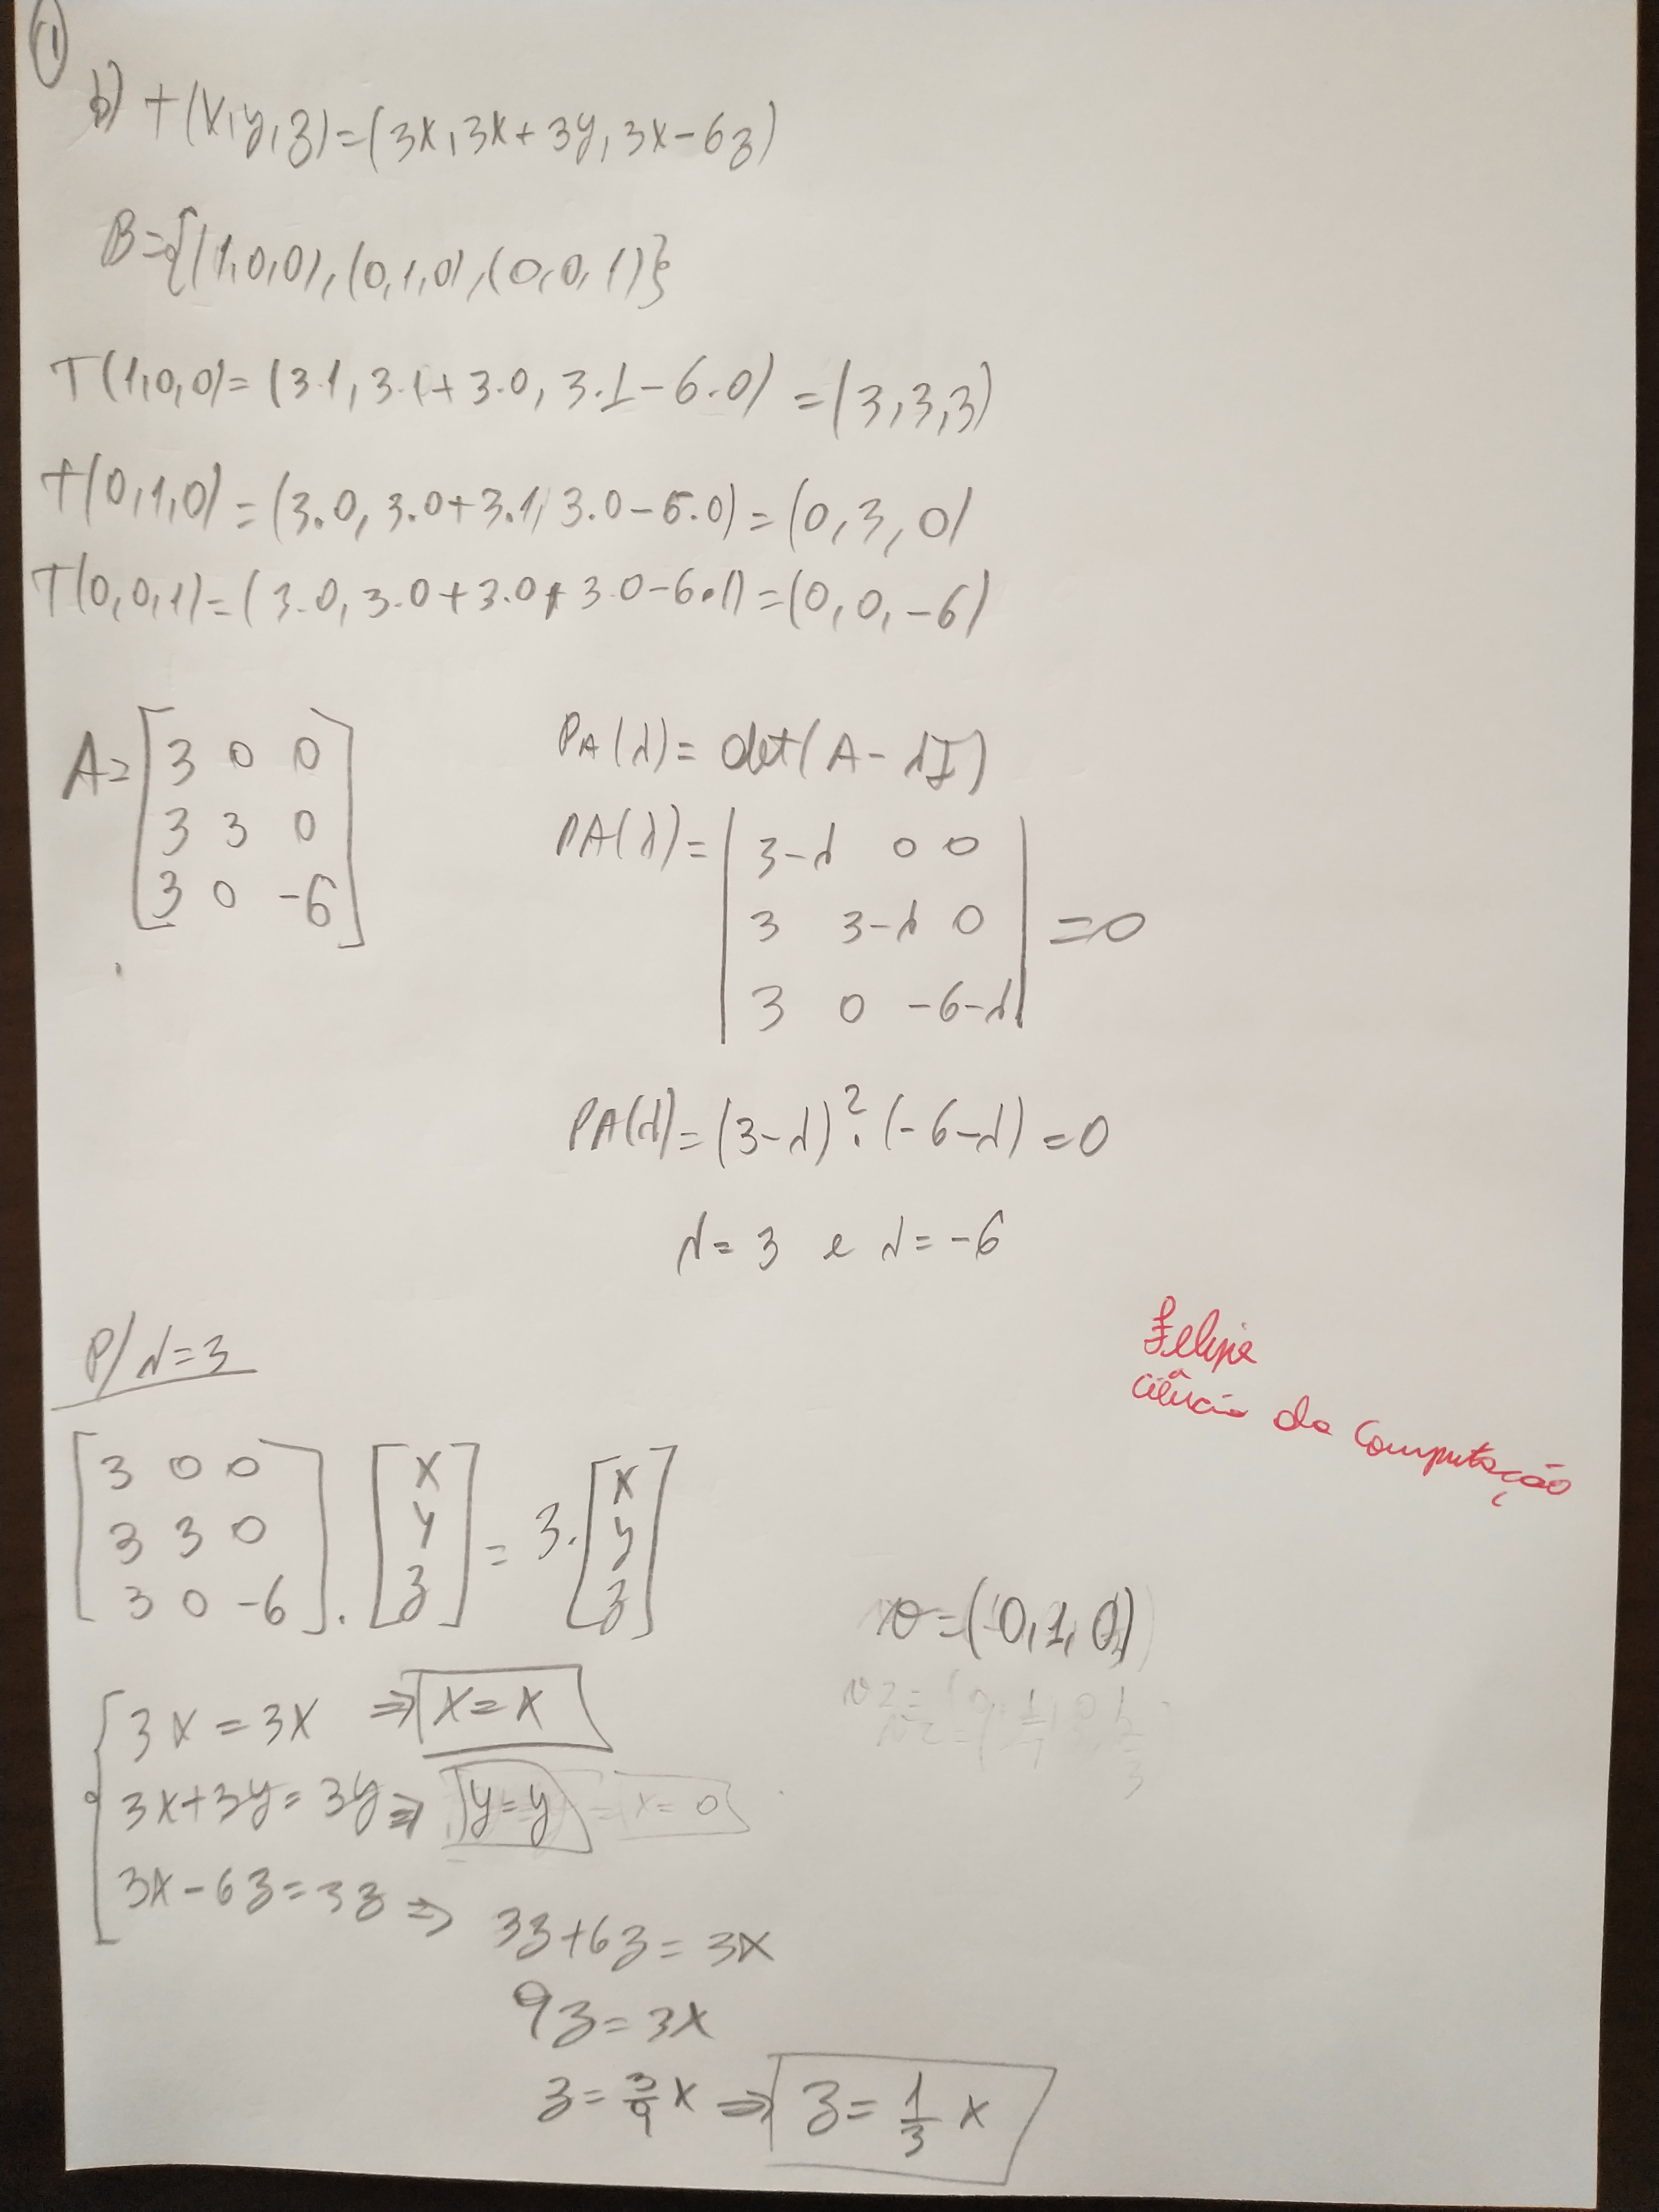 ①
b) T(x,y,z)=(3x,3x+3y,3x-6z)
B={(1,0,0),(0,1,0),(0,0,1)}
T(1,0,0)=(3.1,3.1+3.0,3.1-6.0)=(3,3,3)
T(0,1,0)=(3.0,3.0+3.1,3.0-6.0)=(0,3,0)
T(0,0,1)=(3.0,3.0+3.0,3.0-6.1)=(0,0,-6)
A=[3 0 0
3 3 0
3 0 -6]
PA(λ)=det(A-λI)
PA(λ)=|3-λ 0 0
3 3-λ 0
3 0 -6-λ|=0
PA(λ)=(3-λ)².(-6-λ)=0
λ=3 e λ=-6
Felipe
Ciência da Computação
P/ λ=3
[3 0 0
3 3 0
3 0 -6].[x
y
z]=3.[x
y
z]
v=(0,1,0)
3x=3x ⇒ x=x
3x+3y=3y ⇒ y=y x=0
3x-6z=3z ⇒ 3z+6z=3x
9z=3x
z=3/9 x ⇒ z=1/3 x